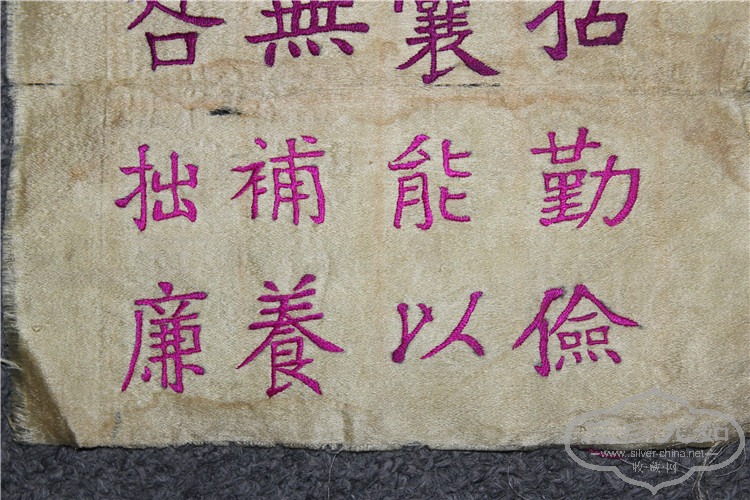 括囊無咎
勤能補拙
儉以養廉
www.silver-china.net
收·藏·网